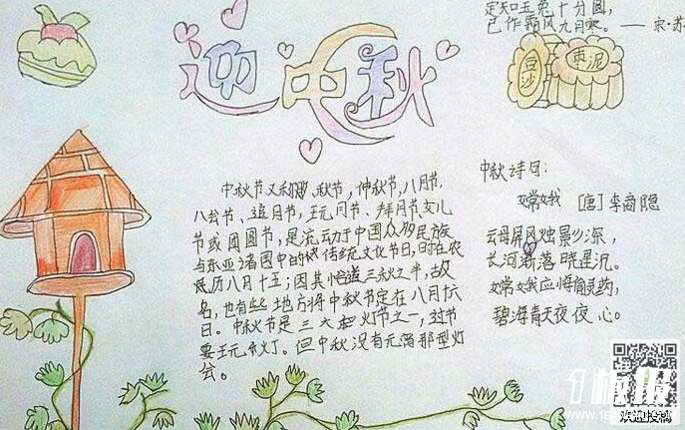 迎中秋
定知玉兔十分圆,
已作霜风九月寒。——宋·苏
豆沙
枣泥
中秋节又称 秋节,仲秋节,八月节,
八 节、追月节,玩月节、拜月节,女儿
节或团圆节,是流 于中国众多民族
与东亚诸国中的 传统文化节日,时在农
历八月十五;因其恰 三秋之半,故
名,也有些地方将中秋节定在八月十六
日。中秋节是三大 灯节之一,过节
要玩 灯。但中秋没有元宵那型灯
会。
中秋诗句:
嫦娥 [唐]李商隐
云母屏风烛影深,
长河渐落晓星沉。
嫦娥应悔偷灵药,
碧海青天夜夜心。
1模板
欢迎投稿